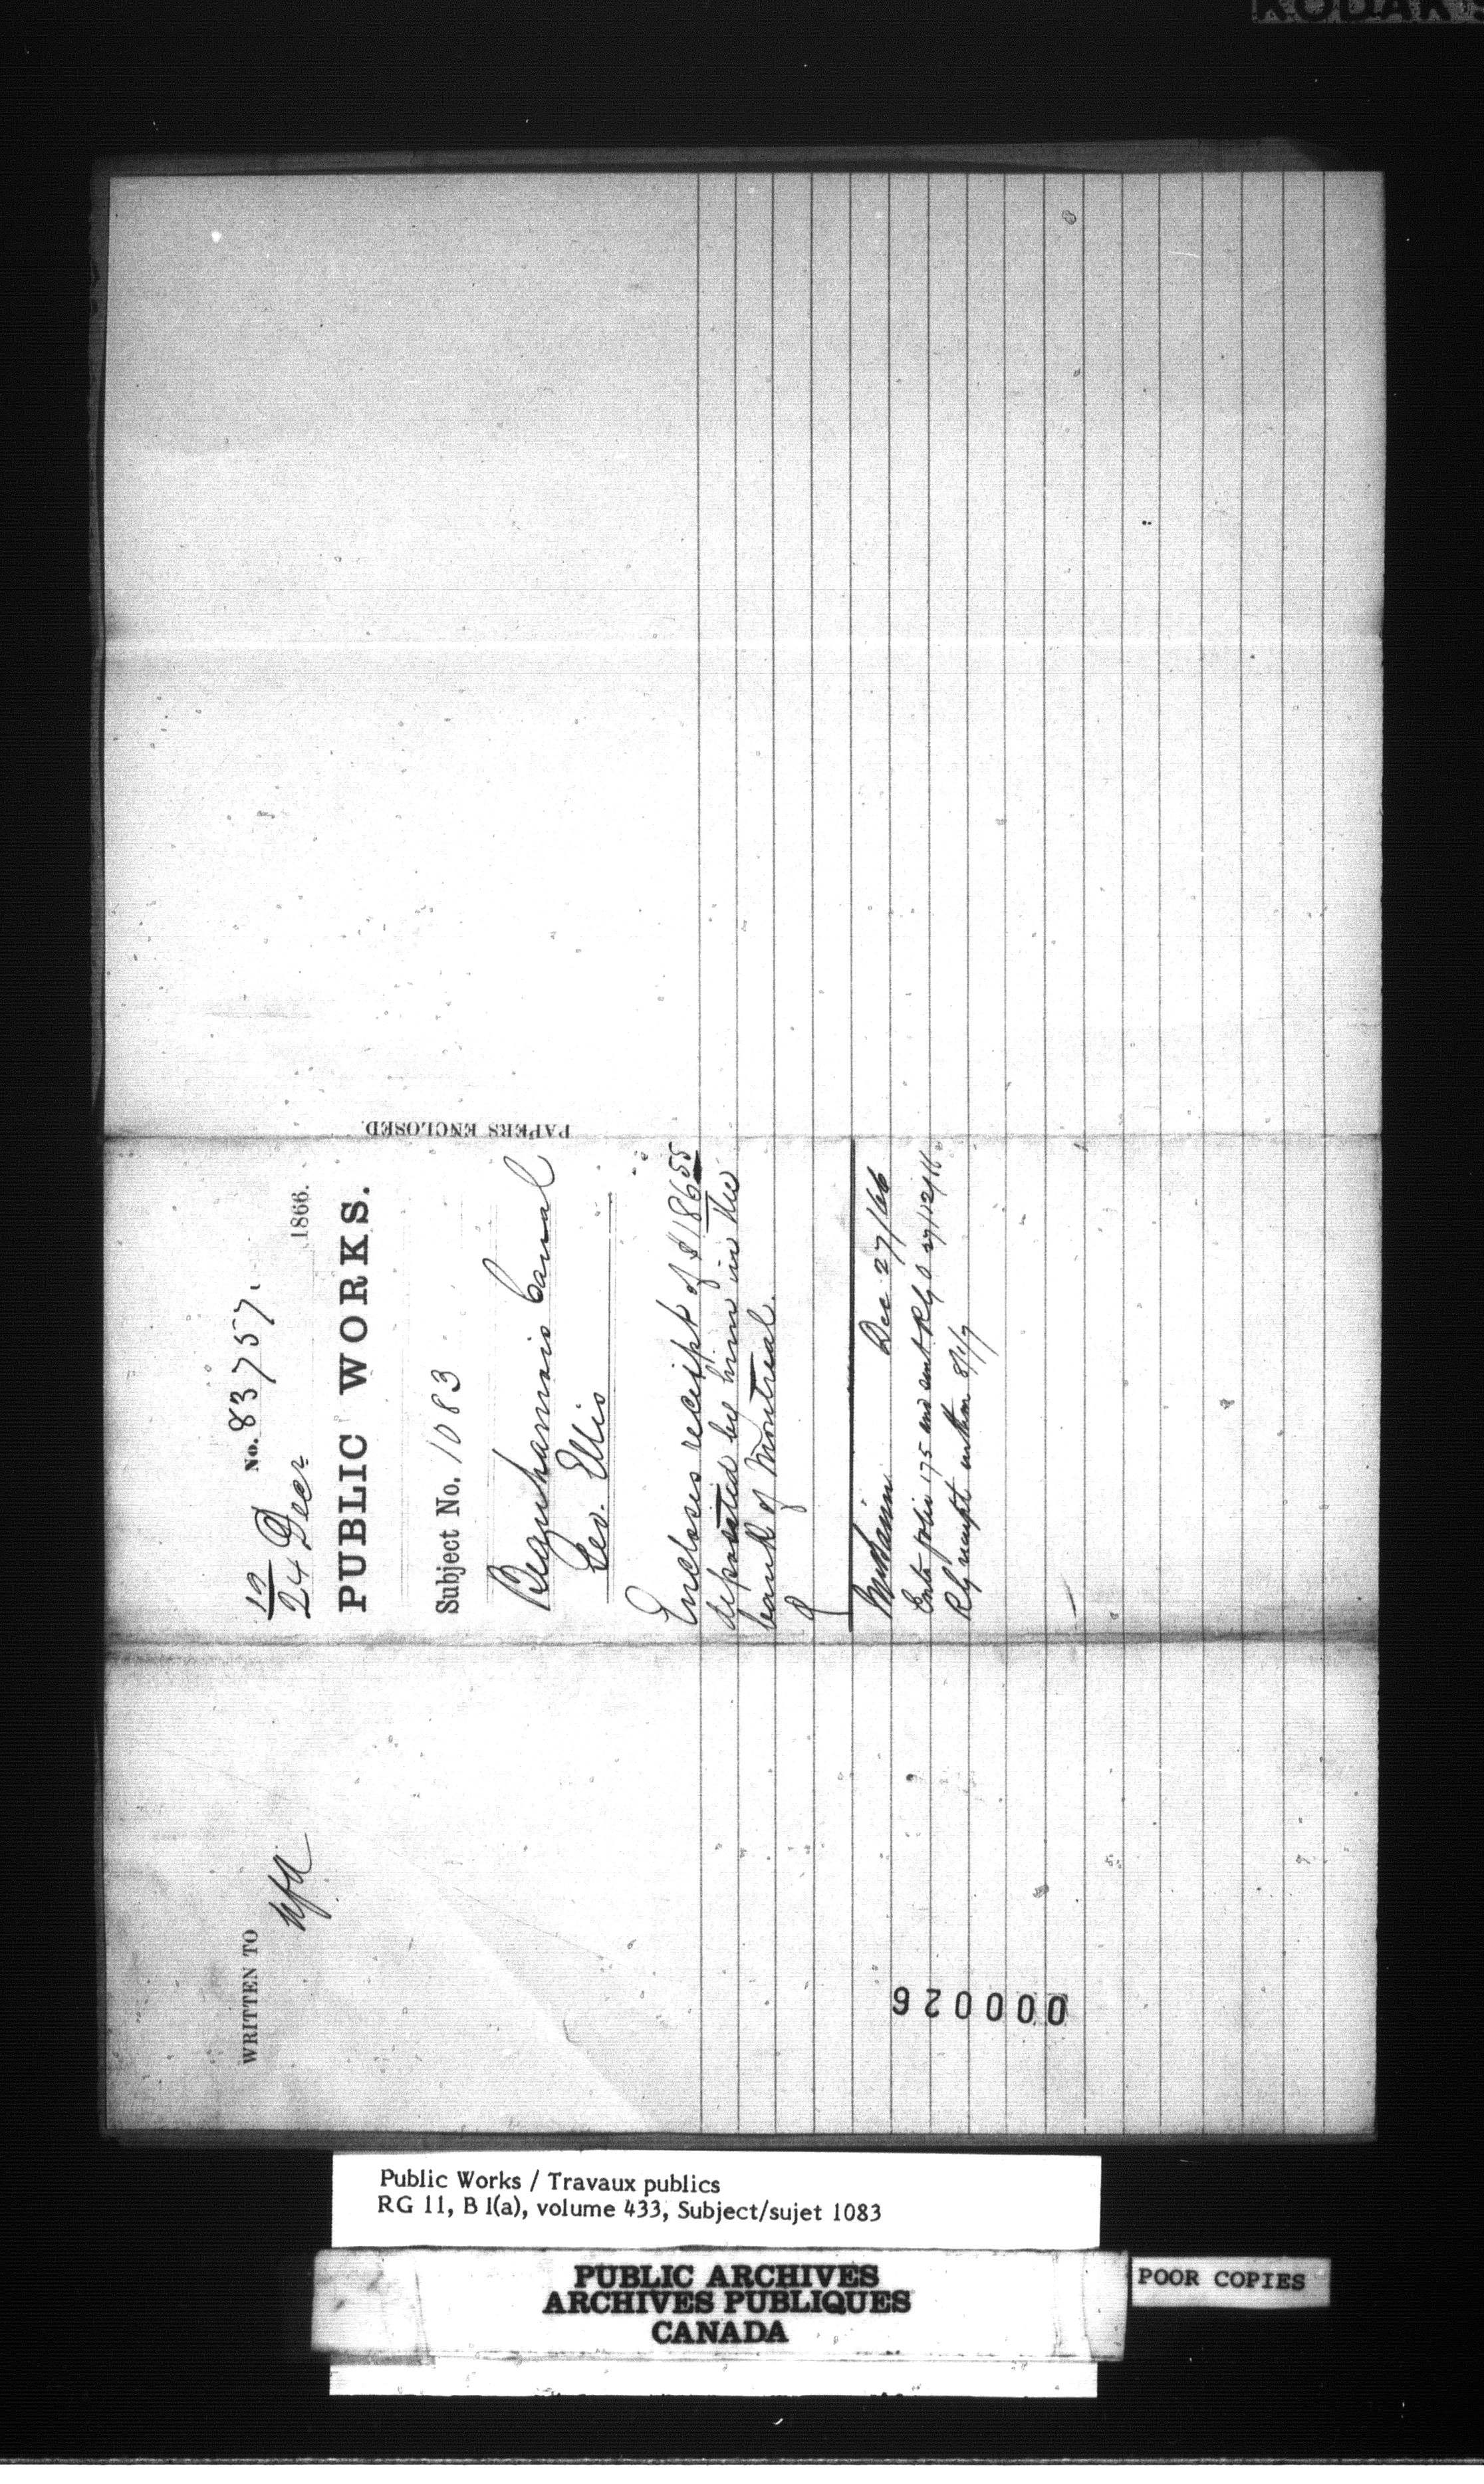 KODAK S
No. 83757.
19
24 Decr 1866.
PUBLIC WORKS.
Subject No. 1083
Beauharnois Canal
Geo. Ellis
Encloses receipt of $186 55
deposited by him in the
bank of Montreal.
Dec 27/66
Ent. folio 175 and sent Rlg 27/12/66
receipt 8/1/67
PAPERS ENCLOSED
WRITTEN TO
000026
Public Works / Travaux publics
RG 11, B 1(a), volume 433, Subject/sujet 1083
PUBLIC ARCHIVES
ARCHIVES PUBLIQUES
CANADA
POOR COPIES